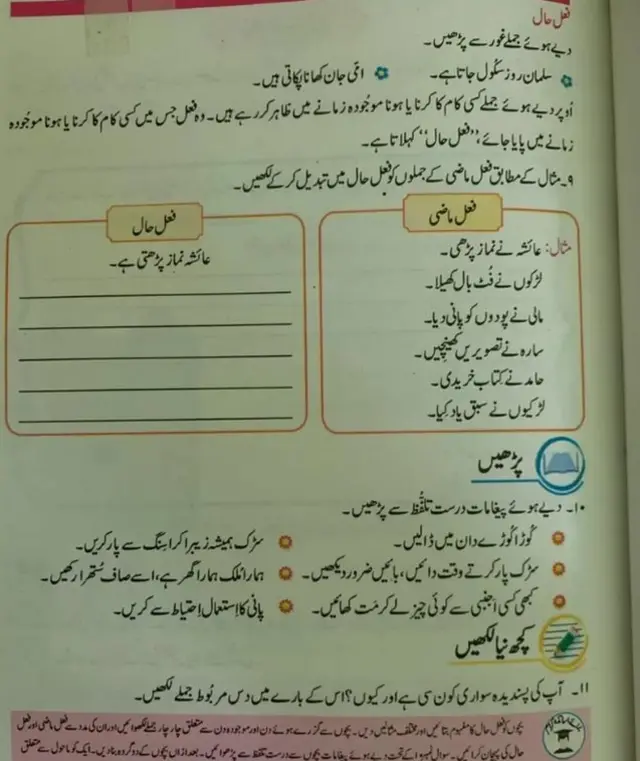 فعل حال
دیے ہوئے جملے غور سے پڑھیں۔
سلمان روز سکُول جاتا ہے۔ امّی جان کھانا پکاتی ہیں۔
اُوپر دیے ہوئے جملے کسی کام کا کرنا یا ہونا موجُودہ زمانے میں ظاہر کر رہے ہیں۔ وہ فعل جس میں کسی کام کا کرنا یا ہونا موجُودہ
زمانے میں پایا جائے، ”فعل حال“ کہلاتا ہے۔
۹۔ مثال کے مطابق فعل ماضی کے جملوں کو فعل حال میں تبدیل کر کے لکھیں۔
فعل ماضی
مثال: عائشہ نے نماز پڑھی۔
لڑکوں نے فُٹ بال کھیلا۔
مالی نے پودوں کو پانی دیا۔
سارہ نے تصویریں کھینچیں۔
حامد نے کِتاب خریدی۔
لڑکیوں نے سبق یاد کِیا۔
فعل حال
عائشہ نماز پڑھتی ہے۔
پڑھیں
۱۰۔ دیے ہوئے پیغامات درست تلفُّظ سے پڑھیں۔
کُوڑا کُوڑے دان میں ڈالیں۔ سڑک ہمیشہ زیبرا کراسِنگ سے پار کریں۔
سڑک پار کرتے وقت دائیں، بائیں ضرور دیکھیں۔ ہمارا مُلک ہمارا گھر ہے، اسے صاف سُتھرا رکھیں۔
کبھی کسی اجنبی سے کوئی چیز لے کر مَت کھائیں۔ پانی کا اِستعمال اِحتیاط سے کریں۔
کچھ نیا لکھیں
۱۱۔ آپ کی پسندیدہ سواری کون سی ہے اور کیوں؟ اس کے بارے میں دس مربُوط جملے لکھیں۔
بچوں کو فعل حال کا مفہوم بتائیں اور مختلف مثالیں دیں۔ بچوں سے گزرے ہوئے دن اور موجودہ دن سے متعلق چار چار جملے لکھوائیں اور ان کی مدد سے فعل ماضی اور فعل
حال کی پہچان کرائیں۔ سوال نمبر ۱۰ کے تحت دیے ہوئے پیغامات بچوں سے درست تلفظ سے پڑھوائیں۔ بعد ازاں بچوں کے دو گروہ بنا دیں۔ ایک کو ماحول سے متعلق